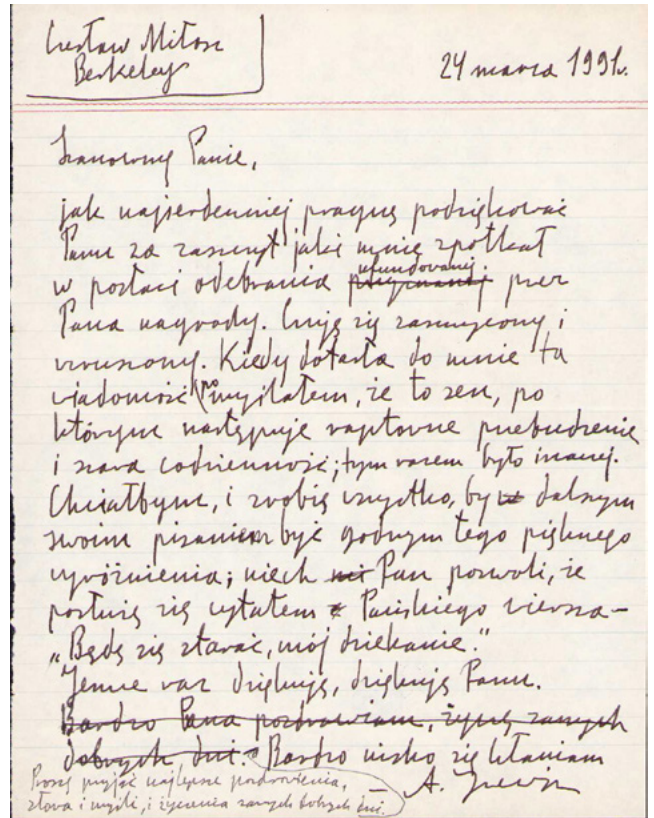 Czesław Miłosz
Berkeley
24 marca 1991r.
Szanowny Panie,
jak najserdeczniej pragnę podziękować
Panu za zaszczyt jaki mnie spotkał
w postaci odebrania ufundowanej przez
Pana nagrody. Czuję się zaszczycony i
wzruszony. Kiedy dotarła do mnie ta
wiadomość pomyślałem, że to sen, po
którym następuje raptowne przebudzenie
i szara codzienność; tym razem było inaczej.
Chciałbym, i zrobię wszystko, by dalszym
swoim pisaniem być godnym tego pięknego
wyróżnienia; niech Pan pozwoli, że
posłużę się cytatem z Pańskiego wiersza –
„Będę się starać, mój dziekanie."
Jeszcze raz dziękuję, dziękuję Panu.
Bardzo Pana pozdrawiam, życzę samych
dobrych dni. Bardzo nisko się kłaniam
Proszę przyjąć najlepsze pozdrowienia,
słowa i myśli, i życzenia samych dobrych dni.
A.